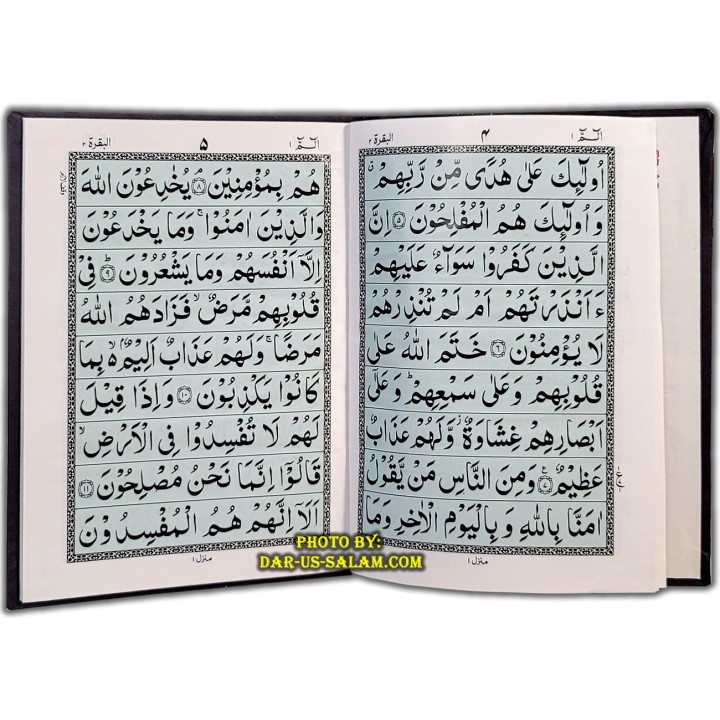 الٓمّٓ ١
۴
البقرة ٢
اُولٰٓئِكَ عَلٰى هُدًى مِّنْ رَّبِّهِمْ ۙ
وَ اُولٰٓئِكَ هُمُ الْمُفْلِحُوْنَ ۝٥ اِنَّ
الَّذِيْنَ كَفَرُوْا سَوَآءٌ عَلَيْهِمْ
ءَاَنْذَرْتَهُمْ اَمْ لَمْ تُنْذِرْهُمْ
لَا يُؤْمِنُوْنَ ۝٦ خَتَمَ اللّٰهُ عَلٰى
قُلُوْبِهِمْ وَعَلٰى سَمْعِهِمْ ؕ وَ عَلٰٓى
اَبْصَارِهِمْ غِشَاوَةٌ ؗ وَّلَهُمْ عَذَابٌ
عَظِيْمٌ ۝٧ وَمِنَ النَّاسِ مَنْ يَّقُوْلُ
اٰمَنَّا بِاللّٰهِ وَ بِالْيَوْمِ الْاٰخِرِ وَمَا
منزل ١
الٓمّٓ ١
۵
البقرة ٢
هُمْ بِمُؤْمِنِيْنَ ۝٨ يُخٰدِعُوْنَ اللّٰهَ
وَالَّذِيْنَ اٰمَنُوْا ۚ وَمَا يَخْدَعُوْنَ
اِلَّاۤ اَنْفُسَهُمْ وَمَا يَشْعُرُوْنَ ۝٩ فِيْ
قُلُوْبِهِمْ مَّرَضٌ ۙ فَزَادَهُمُ اللّٰهُ
مَرَضًا ۚ وَلَهُمْ عَذَابٌ اَلِيْمٌۢ ۙ بِمَا
كَانُوْا يَكْذِبُوْنَ ۝١٠ وَاِذَا قِيْلَ
لَهُمْ لَا تُفْسِدُوْا فِى الْاَرْضِ ۙ
قَالُوْۤا اِنَّمَا نَحْنُ مُصْلِحُوْنَ ۝١١
اَلَاۤ اِنَّهُمْ هُمُ الْمُفْسِدُوْنَ
منزل ١
PHOTO BY:
DAR-US-SALAM.COM